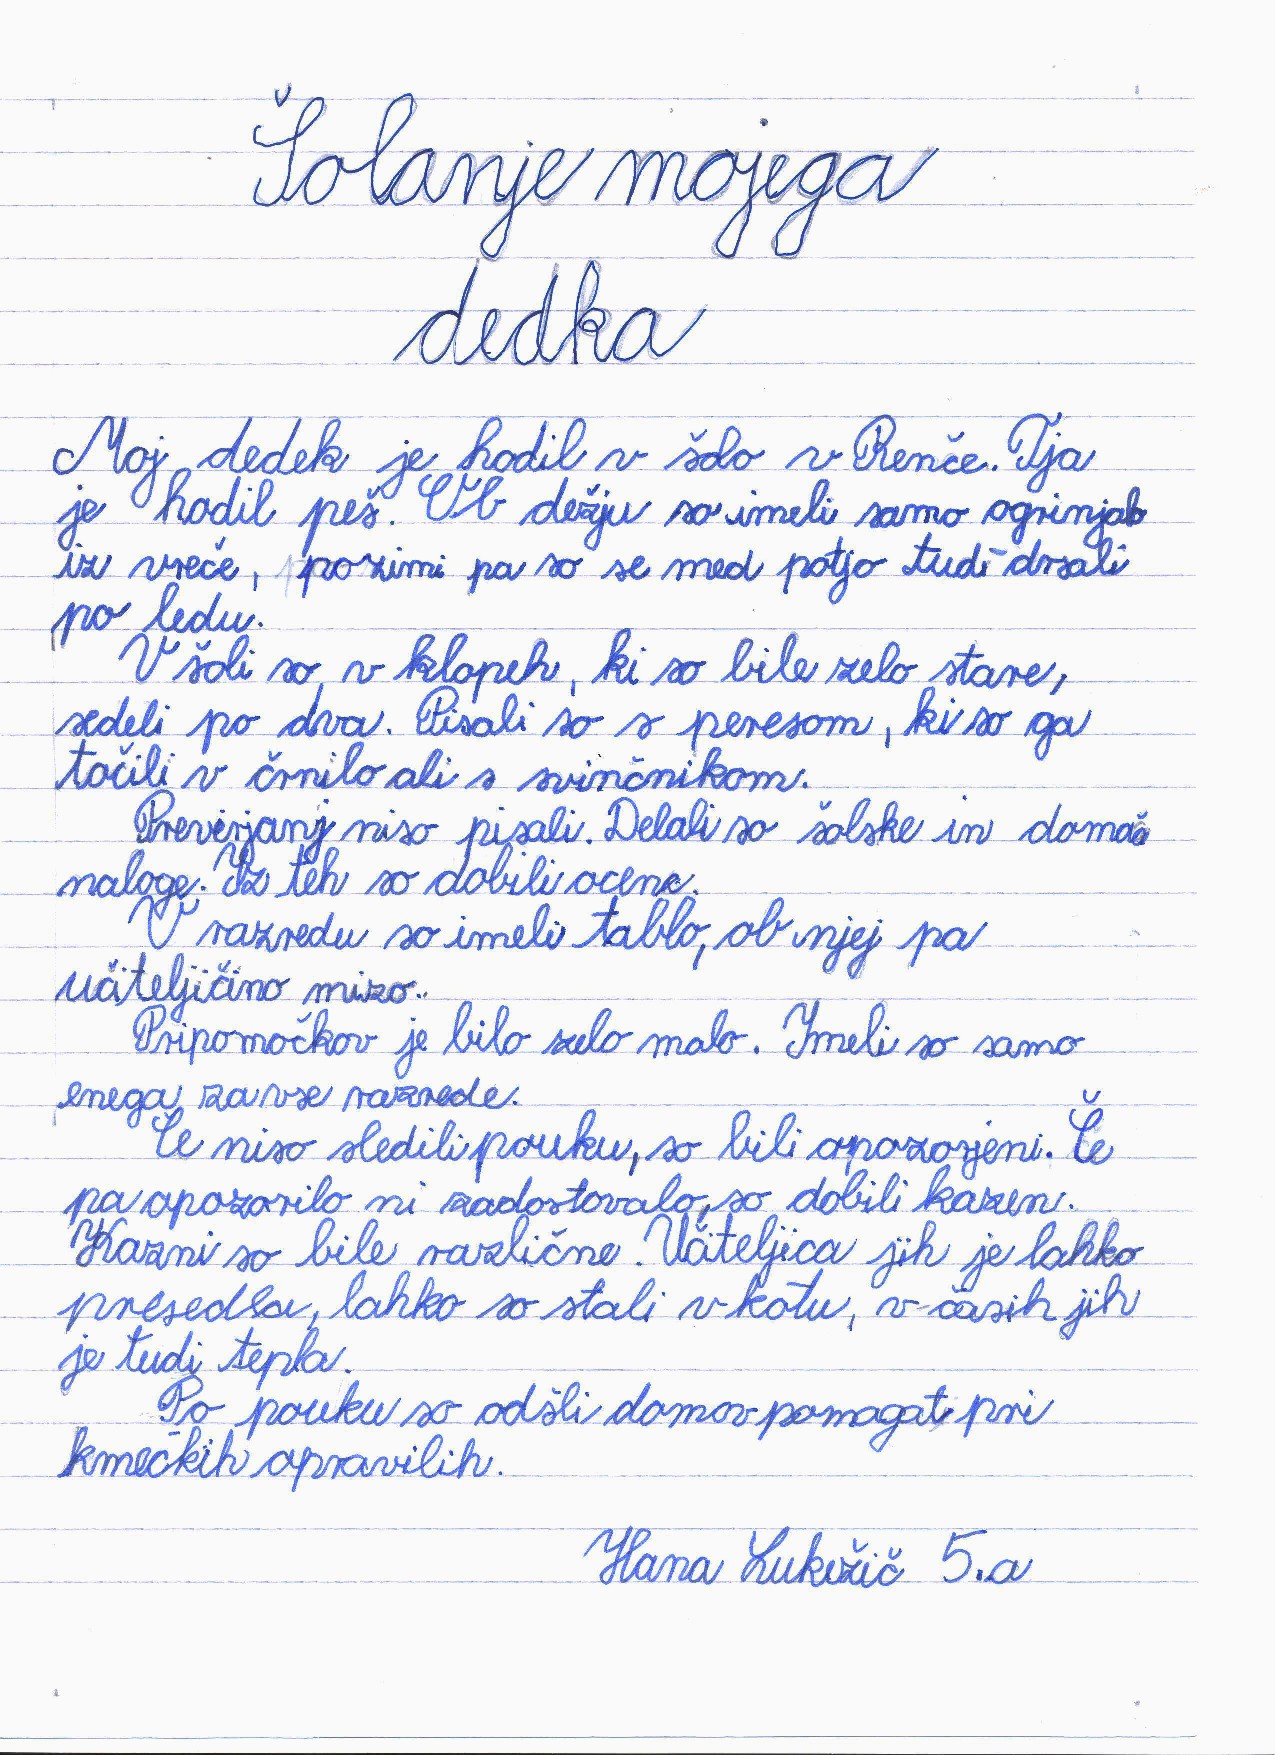 Šolanje mojega
dedka
Moj dedek je hodil v šolo v Renče. Tja
je hodil peš. Ob dežju so imeli samo ogrinjalo
iz vreče, pozimi pa so se med potjo tudi drsali
po ledu.
V šoli so v klopeh, ki so bile zelo stare,
sedeli po dva. Pisali so s peresom, ki so ga
točili v črnilo ali s svinčnikom.
Preverjanj niso pisali. Delali so šolske in domač
naloge. Iz teh so dobili ocene.
V razredu so imeli tablo, ob njej pa
učiteljičino mizo.
Pripomočkov je bilo zelo malo. Imeli so samo
enega za vse razrede.
Če niso sledili pouku, so bili opozorjeni. Če
pa opozorilo ni zadostovalo, so dobili kazen.
Kazni so bile različne. Učiteljica jih je lahko
presedla, lahko so stali v kotu, v-časih jih
je tudi tepla.
Po pouku so odšli domov pomagat pri
kmečkih opravilih.
Hana Lukežič 5.a